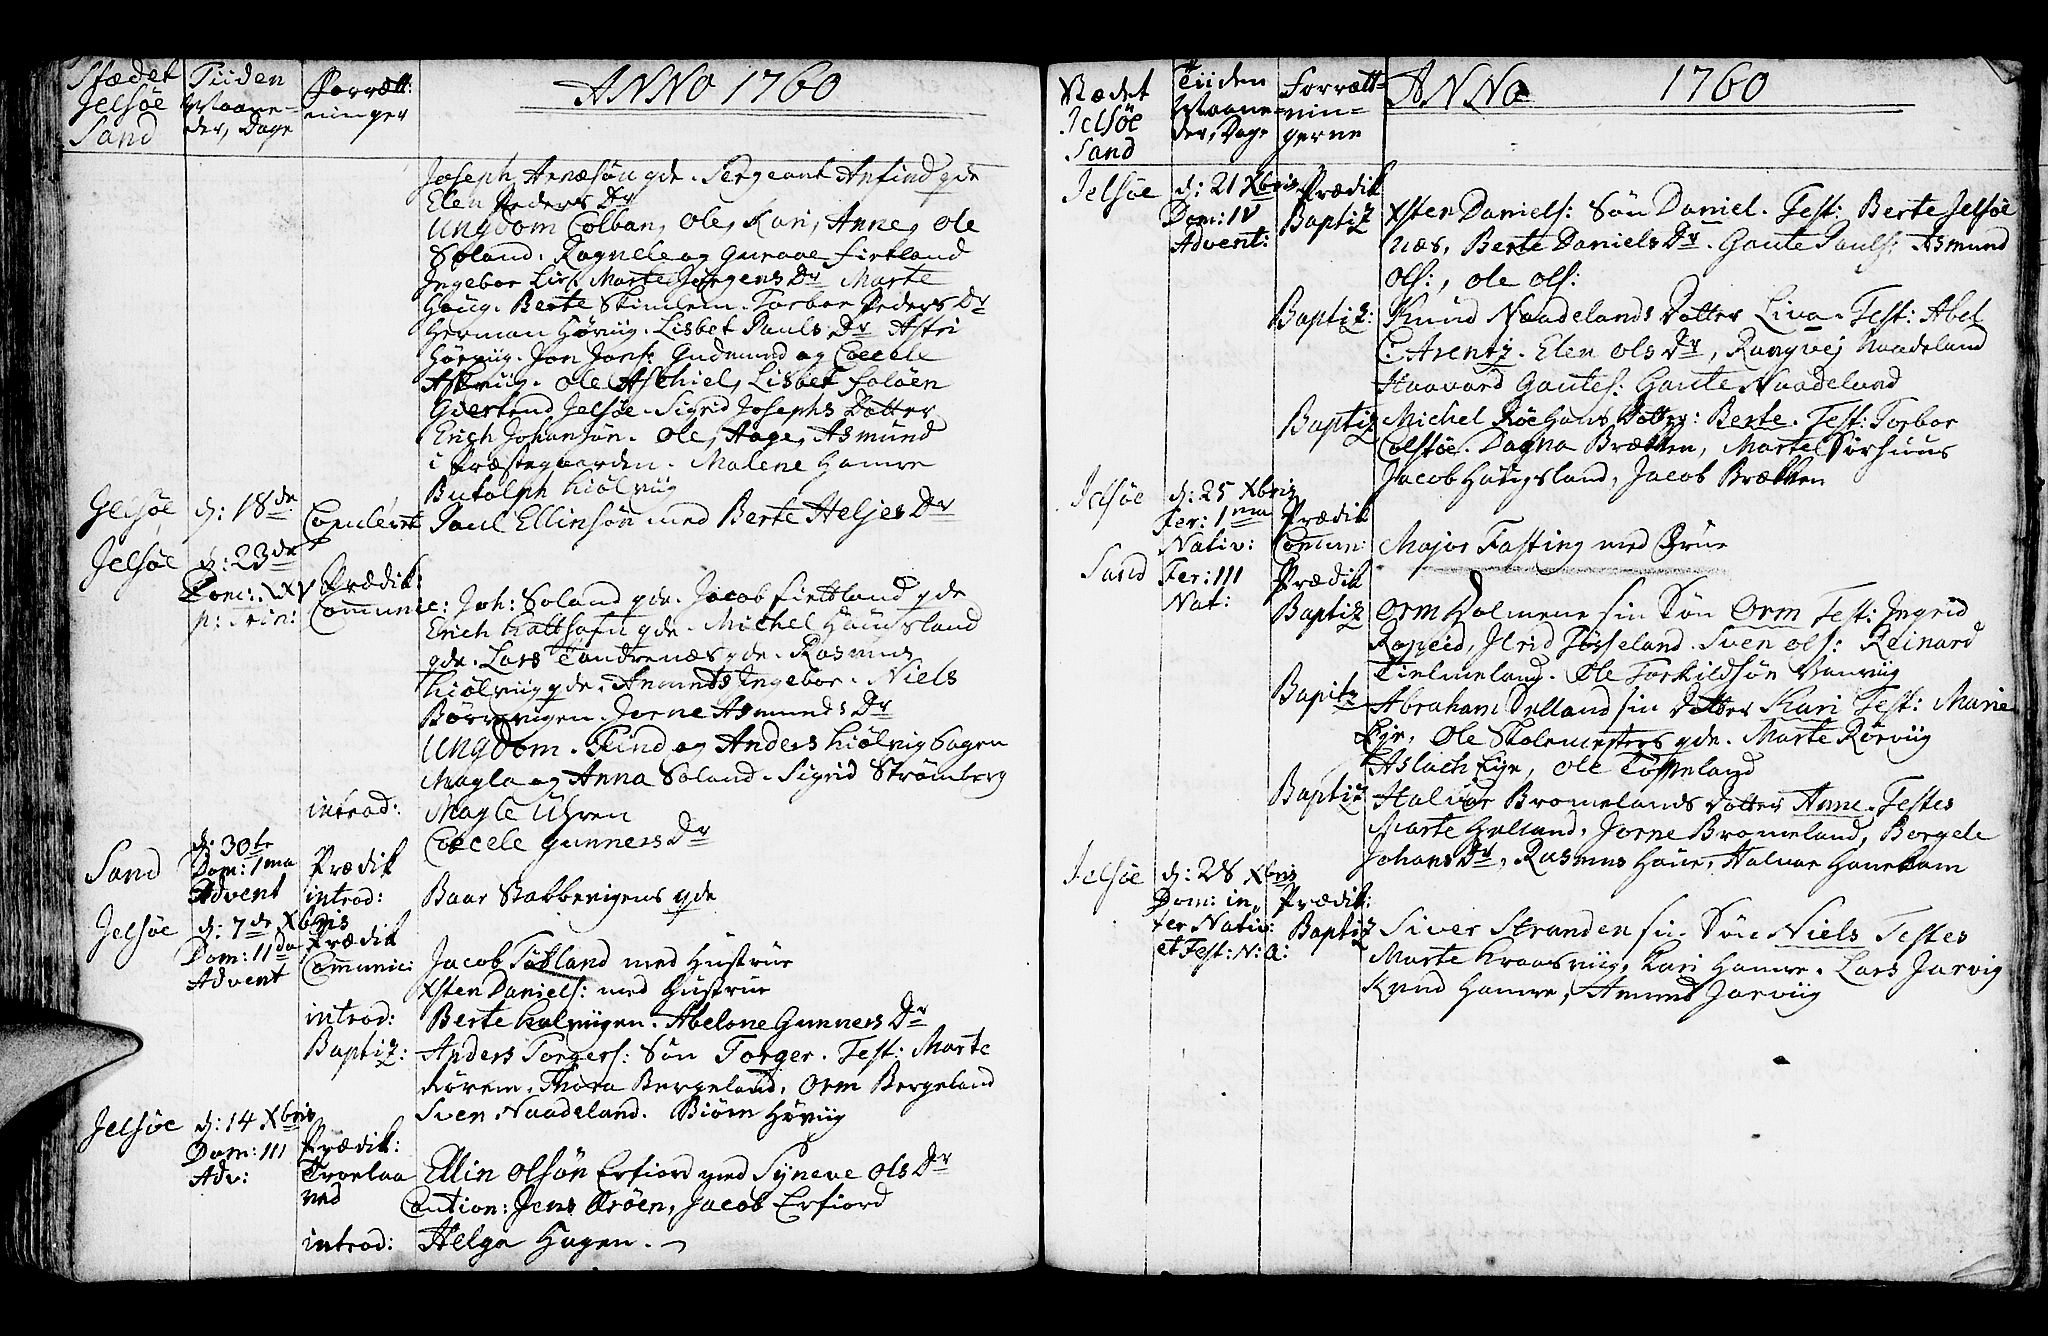 Stædet Jelsøe Sand
Tiiden Maane- der, Dage
Forrætt: ninger
ANNO 1760
Joseph Arnæsøn gde. Sergeant Antind gde
Elen Peders Dr
Ungdom Colban, Ole, Kari, Anne, Ole
Søland. Ragnele og Guraae Fietland
Ingebor Lie. Marte Jørgens Dr Marte
Houg. Berte Skimlem. Torbor Peders Dr
Herman Hørviig. Lisbet Pauls Dr Astri
Hørviig. Jon Jons: Gudmund og Coecele
Askviig. Ole Askiel, Lisbet Foløen
Giertrud Jelsøe. Sigrid Josephs Dotter
Erich Johansøn. Ole, Aage, Asmund
i Præstegaarden. Malene Hamre
Butolph Kiølviig
Jelsøe d: 18de Copuleret Paul Ellinsøn med Berte Heljes Dr
Jelsøe d: 23de
Dom: XXV p: Trin: Prædik: Communic: Joh: Soland gde. Jacob Fiettland gde
Erich gde. Michel Haugsland
gde. Lars Tandrenæs gde. Rasmus
Kiølviig gde. Amunds Ingebor. Niels
Børrevigen. Jorne Asmunds Dr
Ungdom. Find og Anders Kiølvigbagen
Magla og Anna Soland. Sigrid Strømberg
introd: Magle Uhren
Coecele Gunners Dr
Sand d: 30te Dom: 1ma Advent Prædik
introd: Baar Stabbevigens gde
Jelsøe d: 7de Xbris Dom: 11da Advent Prædik
Communic: Jacob Tøtland med Hustrue
Xsten Daniels: med Hustrue
introd: Berte Kalviigen. Abelone Gunners Dr
Baptiz: Anders Torgers: Søn Torger. Test: Marte
Rørem, Thora Bergeland, Orm Bergeland
Sven Naadeland. Biørn Høviig
Jelsøe d: 14 Xbris
Dom: 111 Adv: Prædik:
Troelaa ved Ellin Olsøn Erfiord med Syneve Ols Dr
Cantion: Jens Krøen, Jacob Erfiord
introd: Helga Hagen.
Stædet Jelsøe Sand
Tiiden Maane- der, Dage
Forrætt- nin- gerne
ANNO 1760
Jelsøe d: 21 Xbris Prædik
Dom: 1V Advent: Baptiz Xsten Daniels: Søn Daniel. Test: Berte Jelsøe
næs, Berte Daniels Dr. Gaute Pauls: Asmund
Ols:, Ole Ols:
Baptiz: Knud Naadelands Dotter Liva. Test: Abel
C: Arentz. Elen Ols Dr, Rangvej Naadeland
Haavard Gautes: Gaute Naadeland
Baptiz Michel Røehous Dotter: Berte. Test: Torbor
Colstøe. Dagna Bræкken, Marte Sørhuus
Jacob Haugsland, Jacob Brækken
Jelsøe d: 25 Xbris
Fer: 1ma Nativ: Prædik
Comun: Major Fasting med Frue
Sand Fer: 111 Nat: Prædik
Baptiz Orm Holmene sin Søn Orm Test: Ingrid
Ropeid, Ilrid Tøsseland. Sven Ols: Reinard
Tielmeland. Ole Torkildsøn Vanviig
Bapitz Abraham Helland sin Dotter Kari Test: Marie
Eye, Ole Skolemesters gde. Marte Rørviig
Aslach Eye, Ole Tøsseland
Baptiz Halvor Bromelands Dotter Anne. Testes
Marte Helland, Jorne Bromeland, Borgele
Johans Dr, Rasmus Haue, Halvar Hanekam
Jelsøe d: 28 Xbris
Dom: in- ter Nativ: et Fest: N: A: Prædik:
Baptiz Siver Stranden sin Søn Niels Testes
Marte Kraasviig, Kari Hamre. Lars Jarvig
Knud Hamre, Amund Jarviig